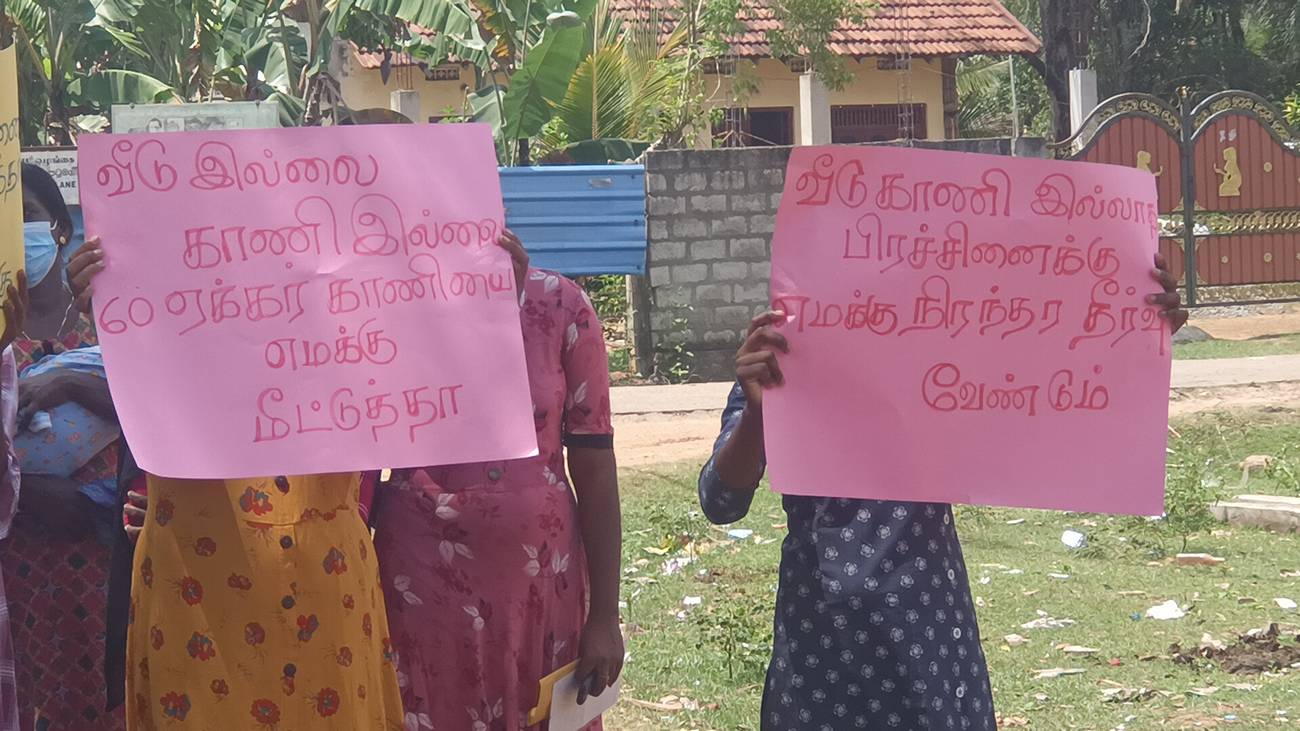 வீடு இல்லை
காணி இல்லை
60 ஏக்கர் காணியை
எமக்கு
மீட்டுத்தா
வீடு காணி இல்லாத
பிரச்சினைக்கு
எமக்கு நிரந்தர தீர்வு
வேண்டும்
LANE